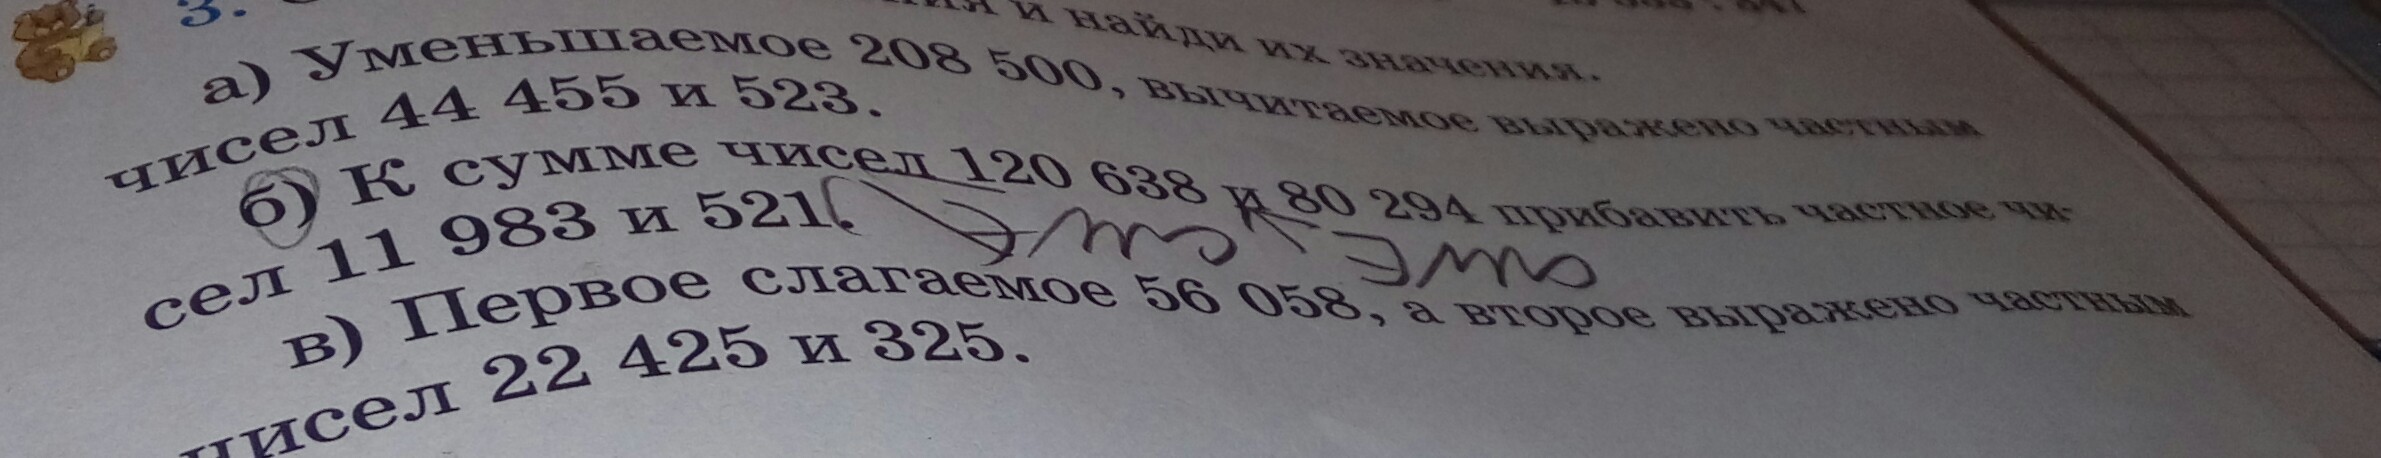 3.
и найди их значения.
а) Уменьшаемое 208 500, вычитаемое выражено частным
чисел 44 455 и 523.
б) К сумме чисел 120 638 и 80 294 прибавить частное чи-
сел 11 983 и 521.
Это Это
в) Первое слагаемое 56 058, а второе выражено частным
чисел 22 425 и 325.